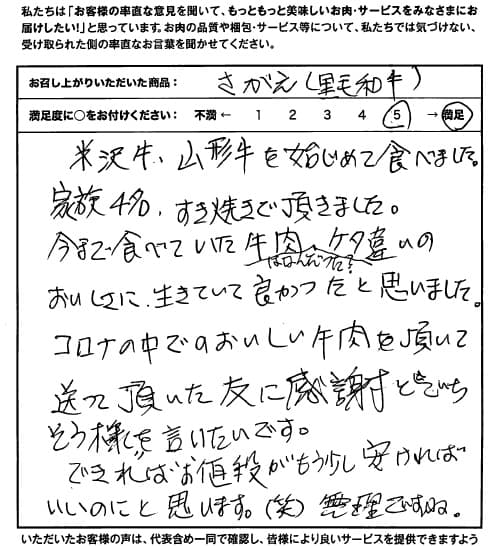 私たちは「お客様の率直な意見を聞いて、もっともっと美味しいお肉・サービスをみなさまにお
届けしたい!」と思っています。お肉の品質や梱包・サービス等について、私たちでは気づけない、
受け取られた側の率直なお言葉を聞かせてください。
お召し上がりいただいた商品: さがえ(黒毛和牛)
満足度に○をお付けください: 不満 ← 1 2 3 4 5 → 満足
米沢牛、山形牛を始じめて食べました。
家族4名、すき焼きで頂きました。
今まで食べていた牛肉、ケタ違いの
はなんだった?
おいしさに、生きていて良かったと思いました。
コロナの中でのおいしい牛肉を頂いて
送って頂いた友に感謝と
そう様を言いたいです。
できればお値段がもう少し安ければ
いいのにと思います。(笑)無理ですね。
いただいたお客様の声は、代表含め一同で確認し、皆様により良いサービスを提供できますよう